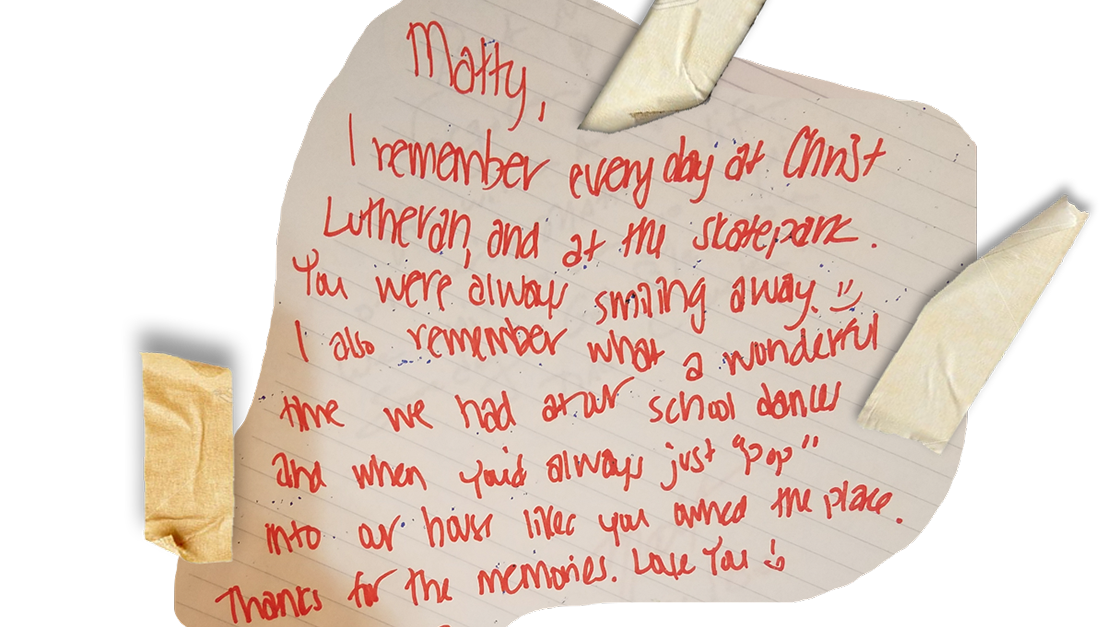 Matty,
I remember every day at Christ
Lutheran, and at the skatepark.
You were always smiling away. :)
I also remember what a wonderful
time we had at our school dances
and when you'd always just "pop"
into our house like you owned the place.
Thanks for the memories. Love You :)